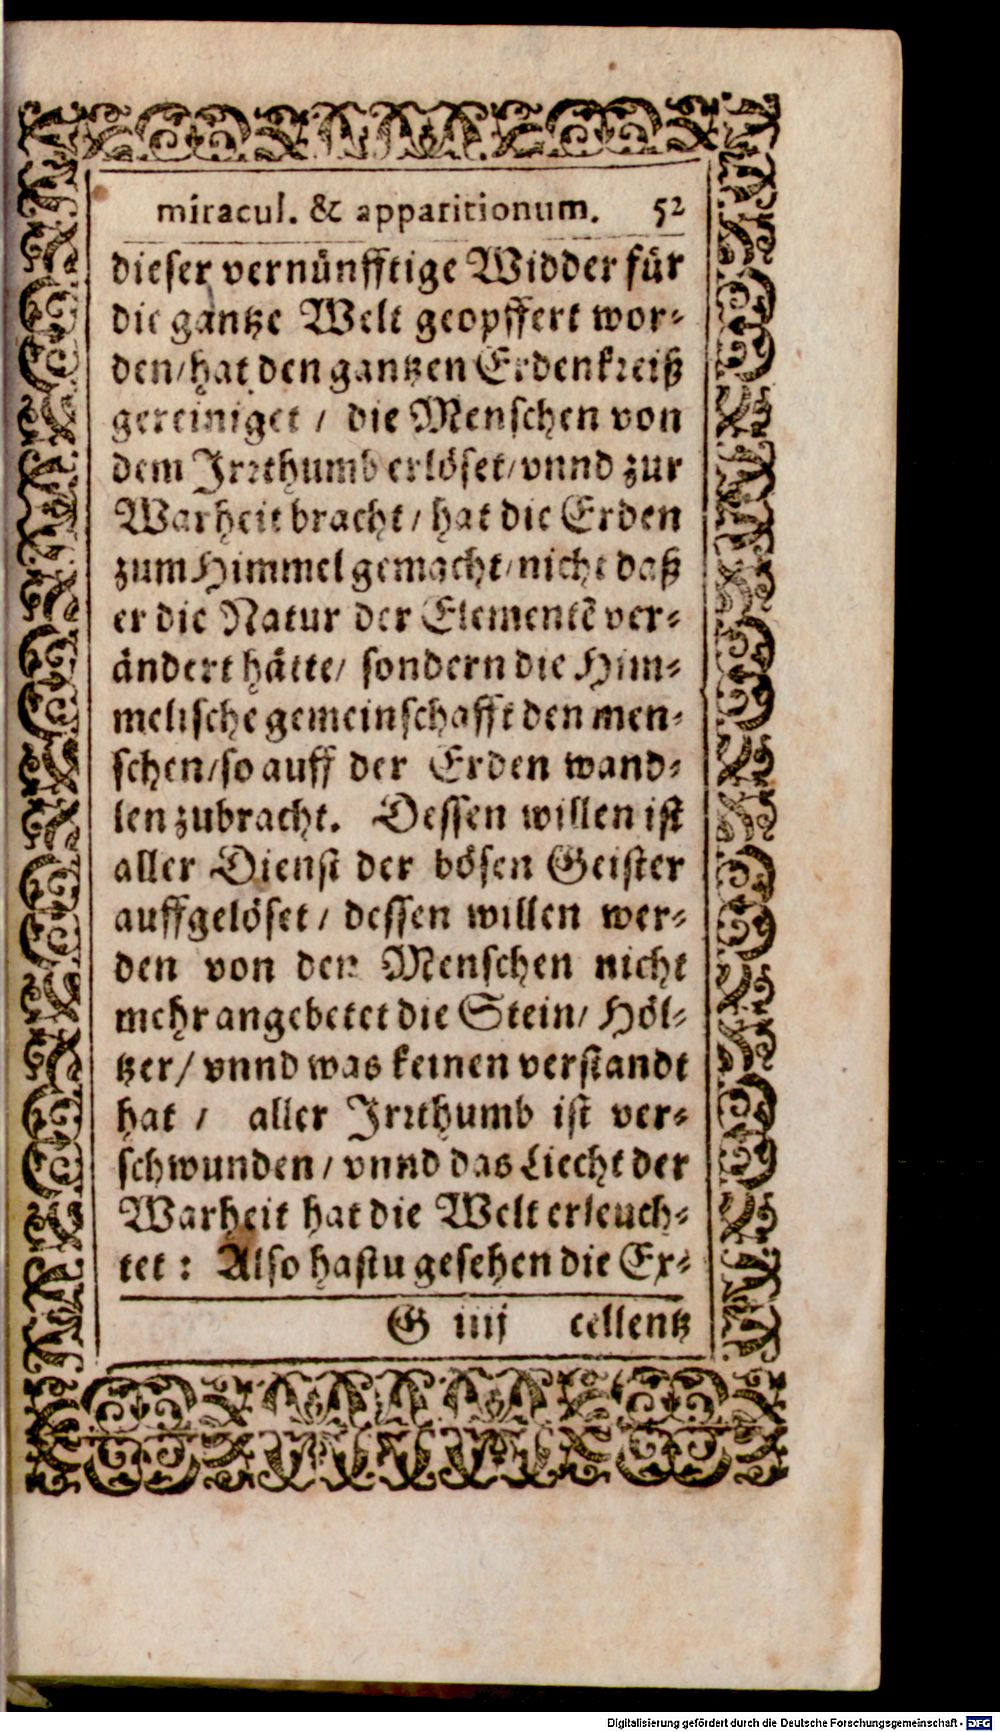 miracul. & apparitionum. 52
dieser vernünfftige Widder für
die gantze Welt geopffert wor-
den/hat den gantzen Erdenkreiß
gereiniget / die Menschen von
dem Irrthumb erlöset/vnnd zur
Warheit bracht/hat die Erden
zum Himmel gemacht/nicht daß
er die Natur der Elementē ver-
ändert hätte/ sondern die Him-
melische gemeinschafft den men-
schen/so auff der Erden wand-
len zubracht. Dessen willen ist
aller Dienst der bösen Geister
auffgelöset/ dessen willen wer-
den von den Menschen nicht
mehr angebetet die Stein/ Höl-
tzer/ vnnd was keinen verstandt
hat / aller Irrthumb ist ver-
schwunden/vnnd das Liecht der
Warheit hat die Welt erleuch-
tet: Also hastu gesehen die Ex-
G iiij cellentz
Digitalisierung gefördert durch die Deutsche Forschungsgemeinschaft - DFG